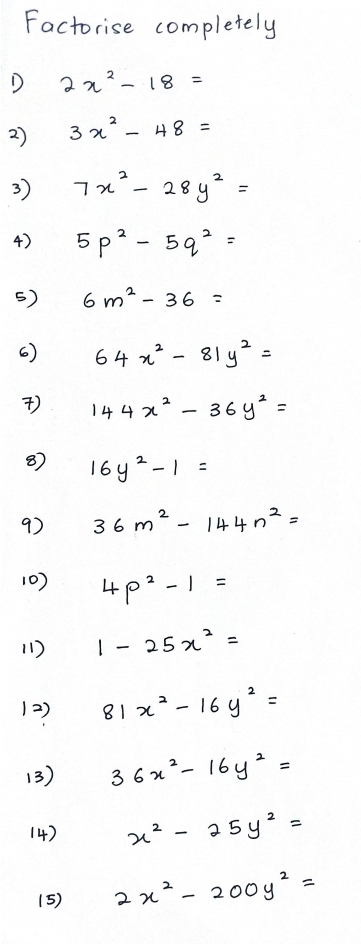 Factorise completely
1) 2x² - 18 =
2) 3x² - 48 =
3) 7x² - 28y² =
4) 5p² - 5q² =
5) 6m² - 36 =
6) 64x² - 81y² =
7) 144x² - 36y² =
8) 16y² - 1 =
9) 36m² - 144n² =
10) 4p² - 1 =
11) 1 - 25x² =
12) 81x² - 16y² =
13) 36x² - 16y² =
14) x² - 25y² =
15) 2x² - 200y² =